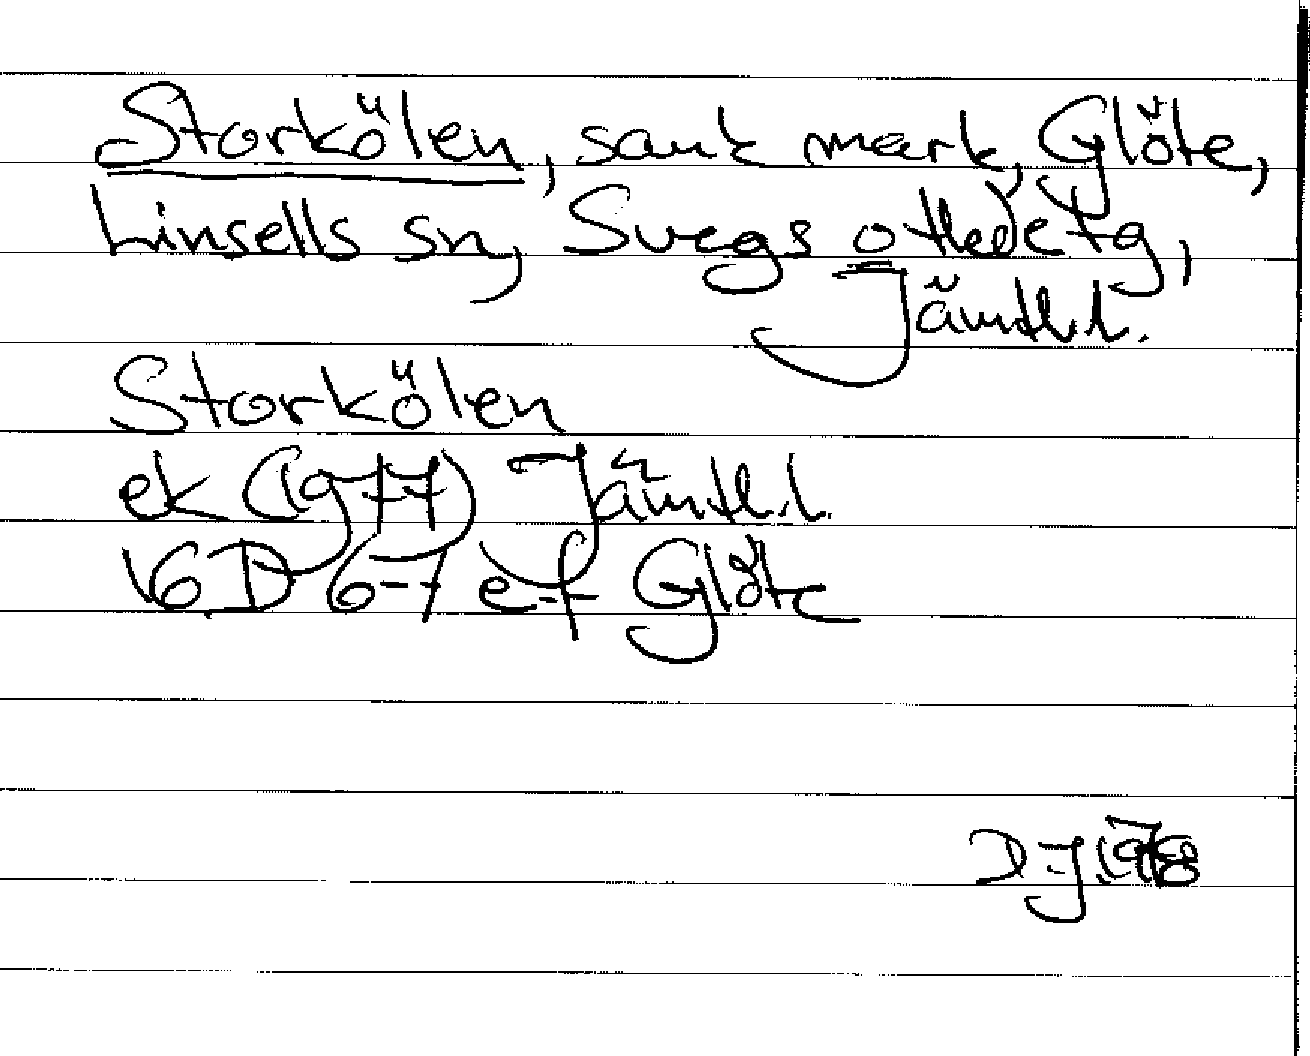 Storkölen, sank mark, Glöte,
Linsells sn, Svegs
Jämtl.l.
Storkölen
ek (1977) Jämtl.l.
16D 6-7 e-f Glöte
D-J 1978